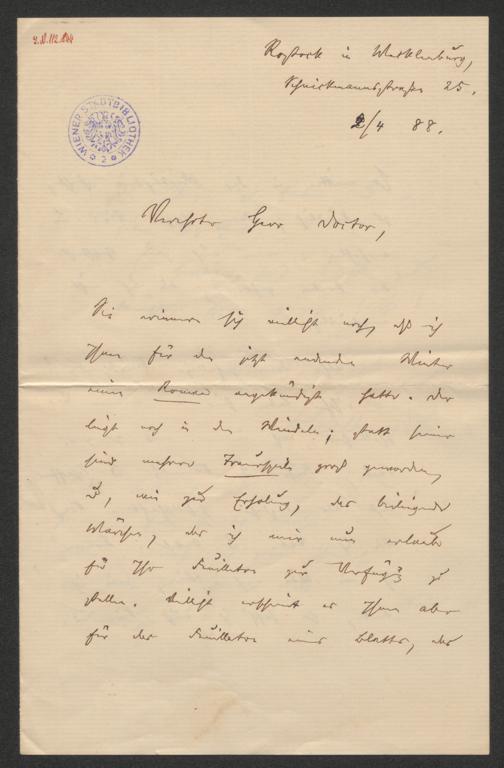 I.N. 112.144
WIENER STADTBIBLIOTHEK
Rostock in Mecklenburg,
Schuckmannstraße 25.
2/4 88.
Verehrter Herr Doctor,
Sie erinnern sich vielleicht noch, daß ich
Ihnen für den jetzt endenden Winter
einen Roman angekündigt hatte. Der
liegt noch in den Windeln; statt seiner
sind mehrere Trauerspiele groß geworden,
u, wie zur Erholung, das beiliegende
Märchen, das ich mir nun erlaube
für Ihr Feuilleton zur Verfügung zu
stellen. Vielleicht erscheint es Ihnen aber
für das Feuilleton eines Blattes, das